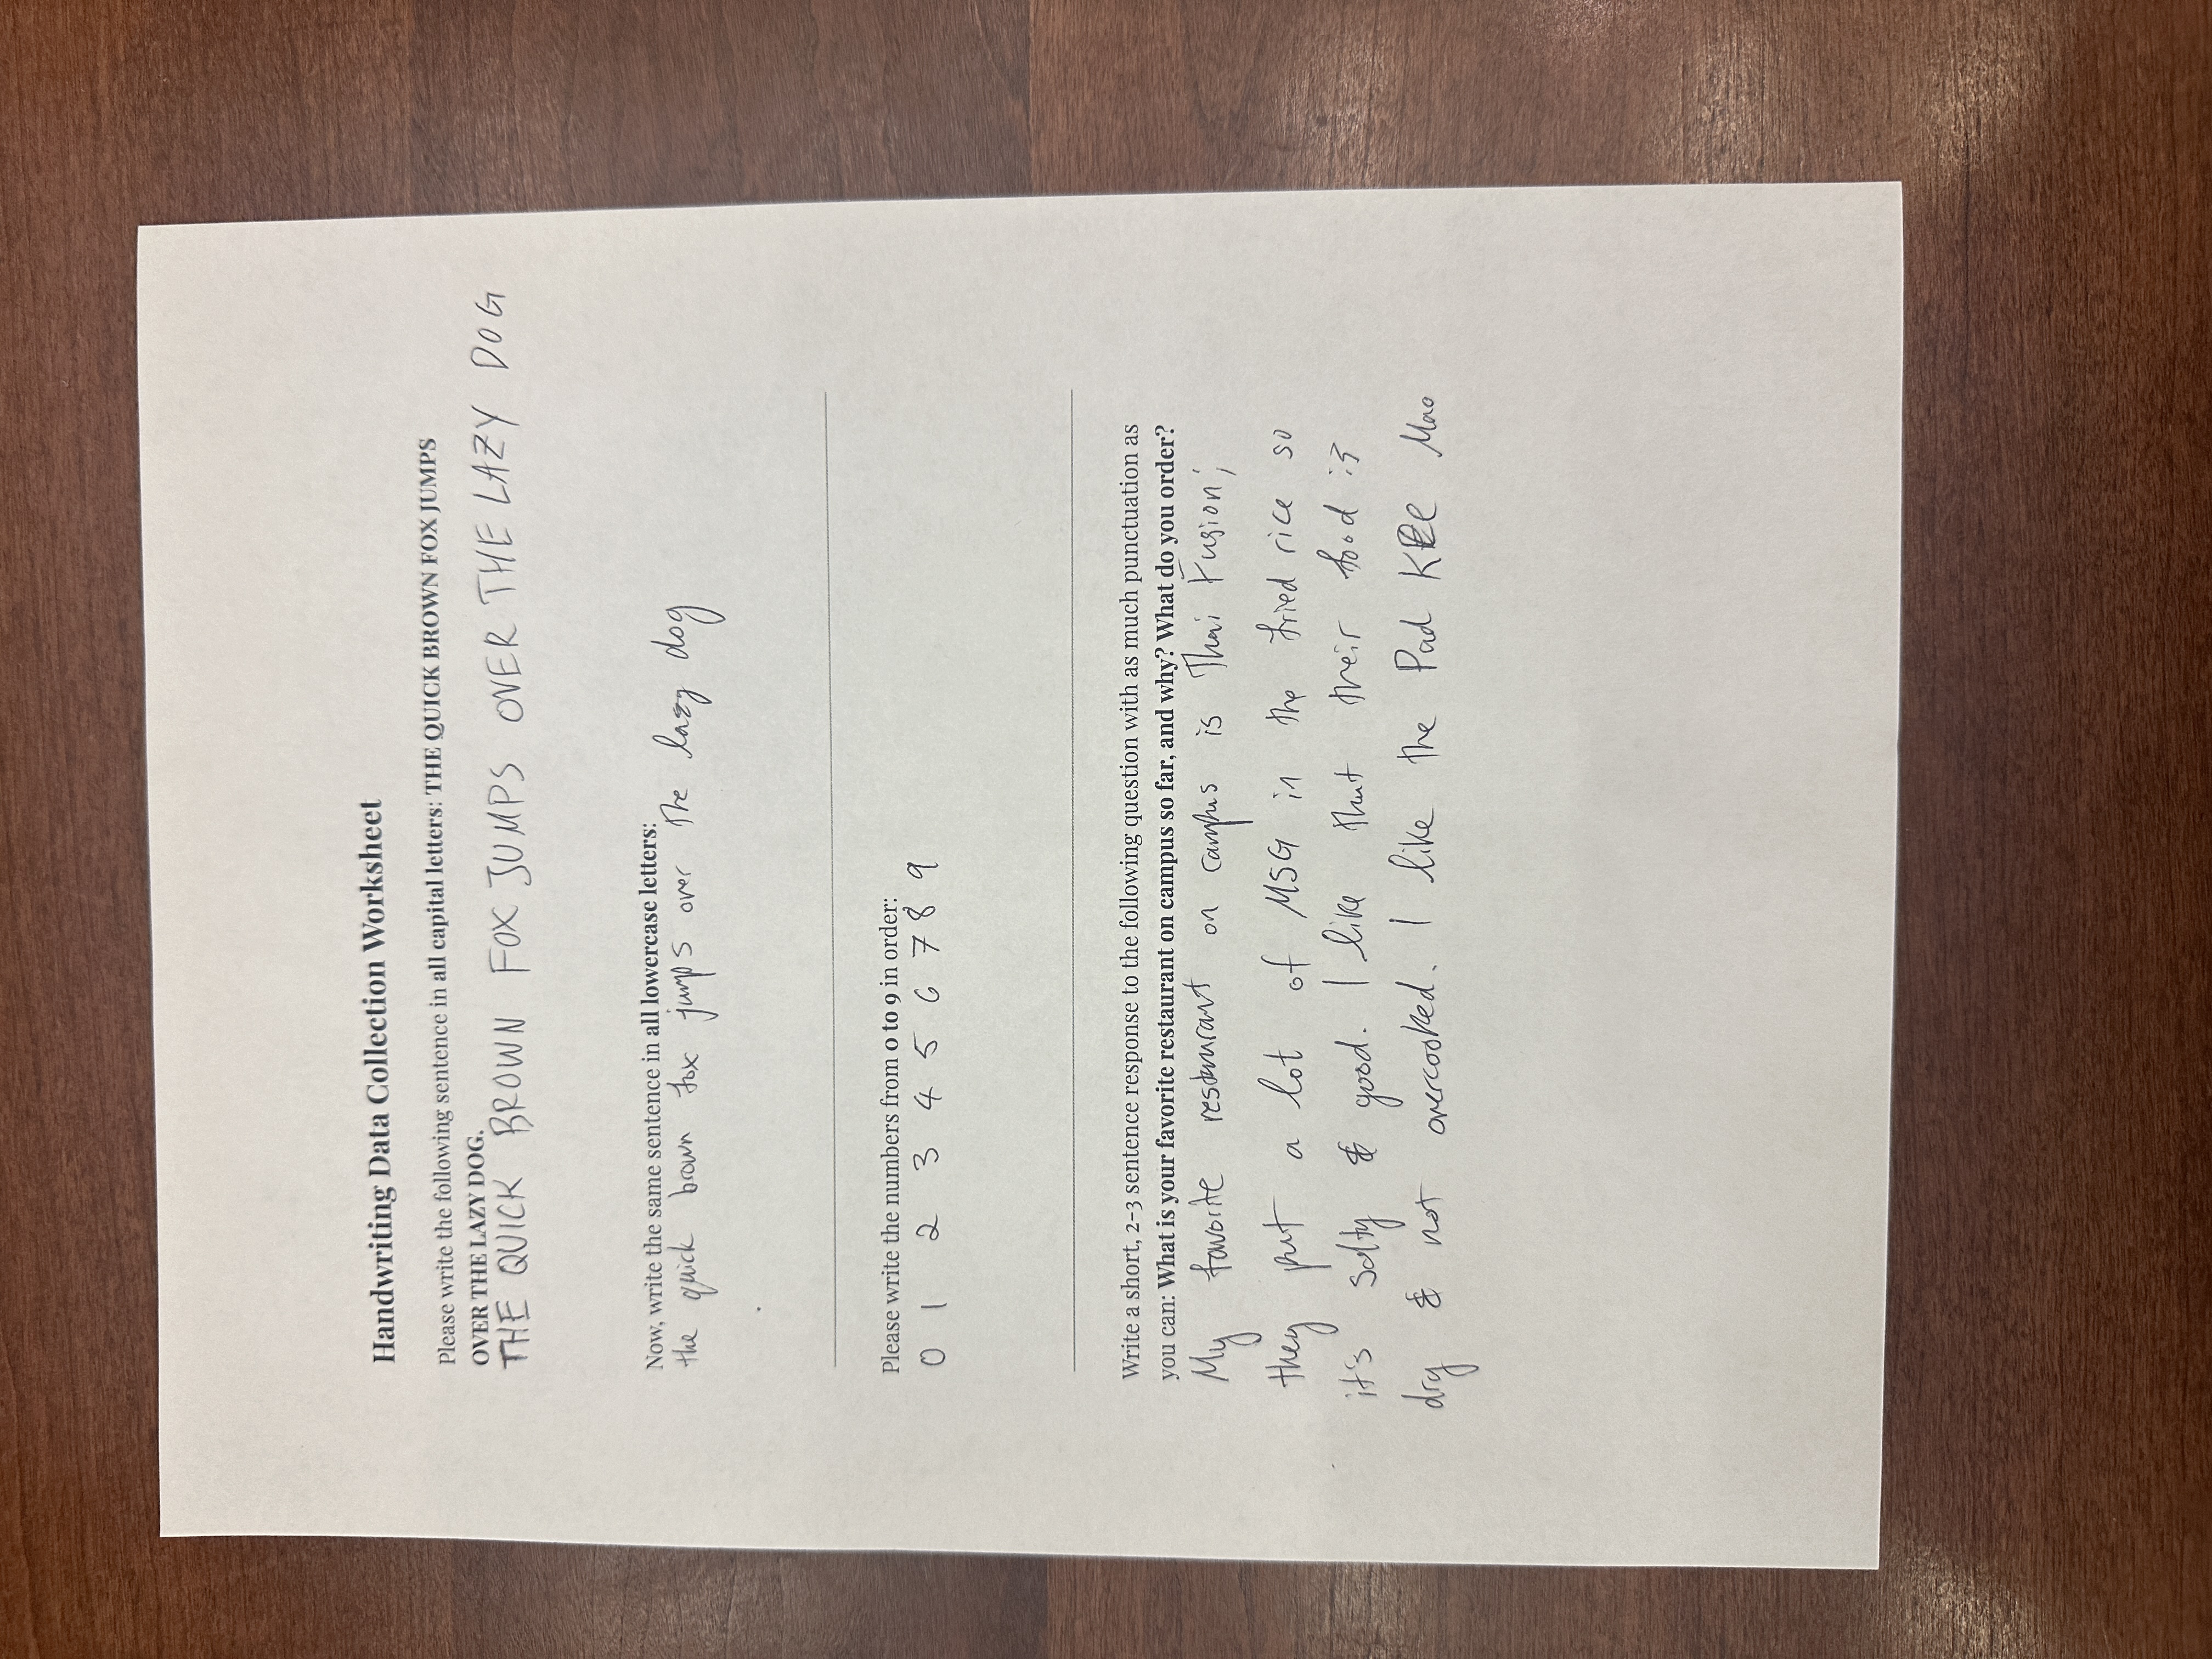 Handwriting Data Collection Worksheet
Please write the following sentence in all capital letters: THE QUICK BROWN FOX JUMPS
OVER THE LAZY DOG.
THE QUICK BROWN FOX JUMPS OVER THE LAZY DOG
Now, write the same sentence in all lowercase letters:
the quick brown fox jumps over the lazy dog
Please write the numbers from 0 to 9 in order:
0 1 2 3 4 5 6 7 8 9
Write a short, 2-3 sentence response to the following question with as much punctuation as
you can: What is your favorite restaurant on campus so far, and why? What do you order?
My favorite restaurant on campus is Thai Fusion;
they put a lot of MSG in the fried rice so
it's salty & good. I like that their food is
dry & not overcooked. I like the Pad KEE Mao